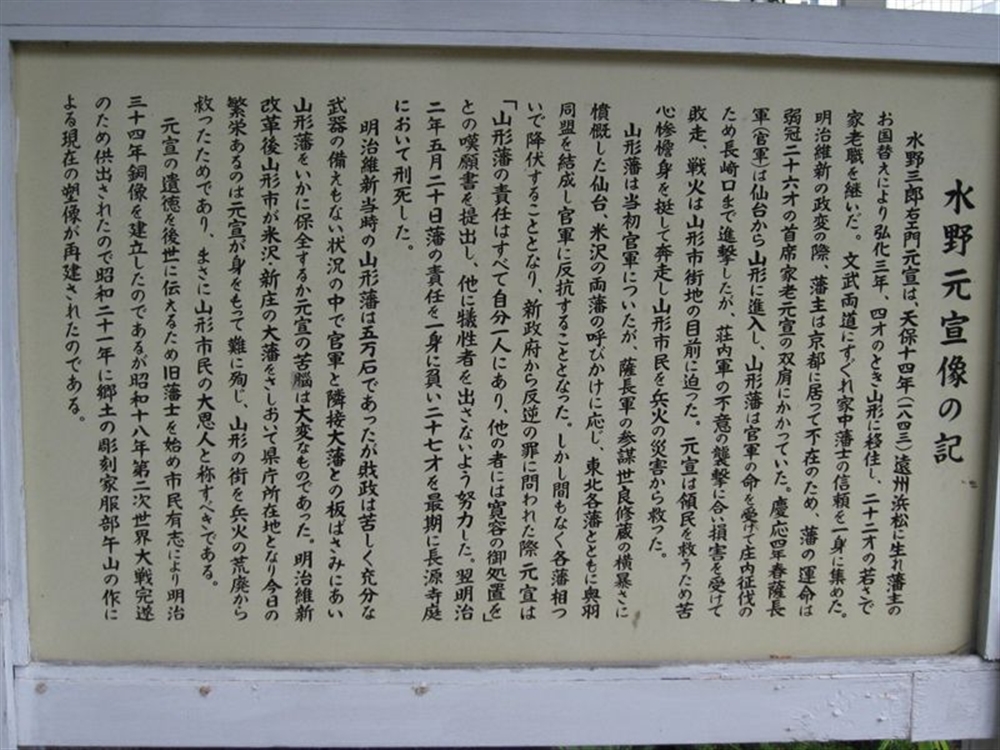 水野元宣像の記
水野三郎右エ門元宣は、天保十四年(一八四三)遠州浜松に生れ藩主の
お国替えにより弘化三年、四才のとき山形に移住し、二十二才の若さで
家老職を継いだ。文武両道にすぐれ家中藩士の信頼を一身に集めた。
明治維新の政変の際、藩主は京都に居って不在のため、藩の運命は
弱冠二十六才の首席家老元宣の双肩にかかっていた。慶応四年春薩長
軍(官軍)は仙台から山形に進入し、山形藩は官軍の命を受けて庄内征伐の
ため長崎口まで進撃したが、荘内軍の不意の襲撃に合い損害を受けて
敗走、戦火は山形市街地の目前に迫った。元宣は領民を救うため苦
心惨憺身を挺して奔走し山形市民を兵火の災害から救った。
山形藩は当初官軍についたが、薩長軍の参謀世良修蔵の横暴さに
憤慨した仙台、米沢の両藩の呼びかけに応じ、東北各藩とともに奥羽
同盟を結成し官軍に反抗することとなった。しかし間もなく各藩相つ
いで降伏することとなり、新政府から反逆の罪に問われた際元宣は
「山形藩の責任はすべて自分一人にあり、他の者には寛容の御処置を」
との嘆願書を提出し、他に犠性者を出さないよう努力した。翌明治
二年五月二十日藩の責任を一身に負い二十七才を最期に長源寺庭
において刑死した。
明治維新当時の山形藩は五万石であったが財政は苦しく充分な
武器の備えもない状況の中で官軍と隣接大藩との板ばさみにあい
山形藩をいかに保全するか元宣の苦脳は大変なものであった。明治維新
改革後山形市が米沢、新庄の大藩をさしおいて県庁所在地となり今日の
繁栄あるのは元宣が身をもって難に殉じ、山形の街を兵火の荒廃から
救ったためであり、まさに山形市民の大恩人と称すべきである。
元宣の遺徳を後世に伝えるため旧藩士を始め市民有志により明治
三十四年銅像を建立したのであるが昭和十八年第二次世界大戦完遂
のため供出されたので昭和二十一年に郷土の彫刻家服部午山の作に
よる現在の塑像が再建されたのである。